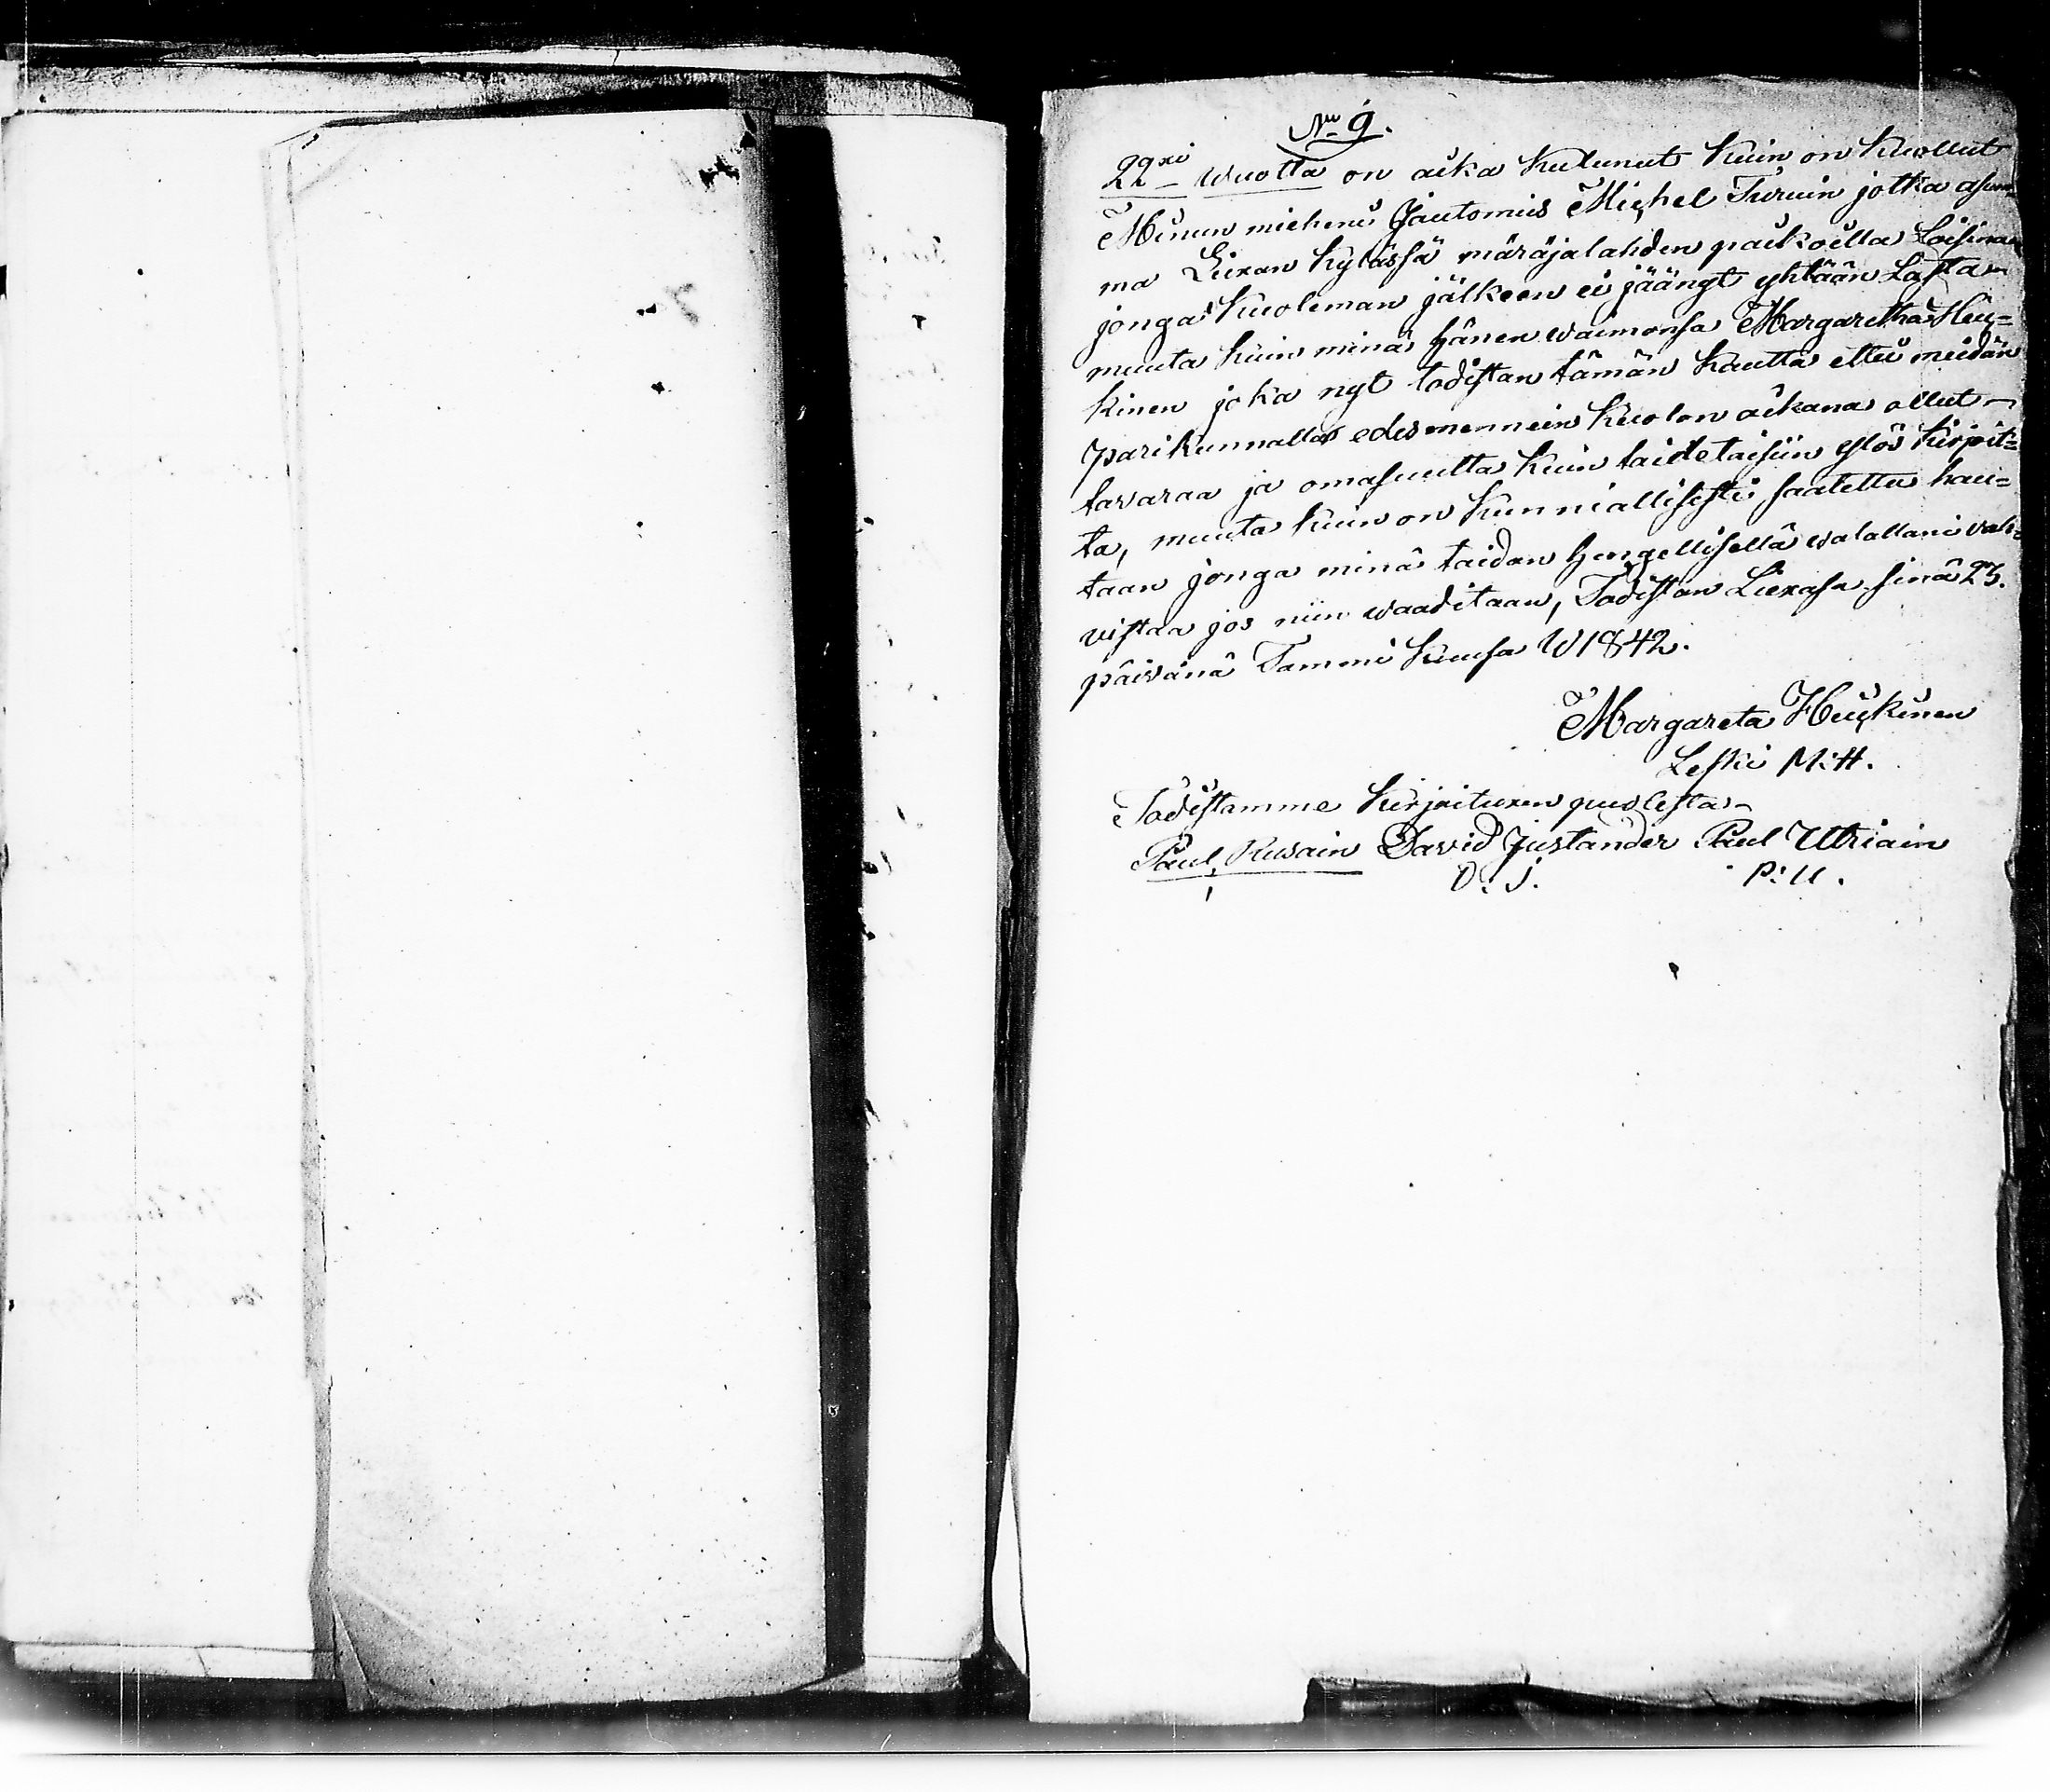 No 9.
22xi wuotta on aika kulunut kuin on kuollut
Minun mieheni Jautomies Michel Turuin jotka asu=
ma Liexan kylässä märäjalahden paikoilla Loisina
jonga kuoleman jälkeen ei jäänyt yhtään Lasta
muuta kuin minä hänen waimonsa Margaretha Heis=
kinen joka nyt todistan tämän kautta ettei meidän
parikunnalla edesmennein kuolon aikana ollut
tavaraa ja omasuutta kuin taidetaisiin ylös kirjoit=
ta, muuta kuin on kunniallisesti saatettu hau=
taan jonga minä taidan hengellisellä walallani vah=
vistaa jos niin waaditaan, Todistan Liexasa sinä 25.
päivänä Tammi kuusa W 1842.
Margareta Heiskinen
Leski M:H.
Todistamme kirjoituxen puolesta
Paul Rusain David Justander Paul Uttriain
D: J. P: U.